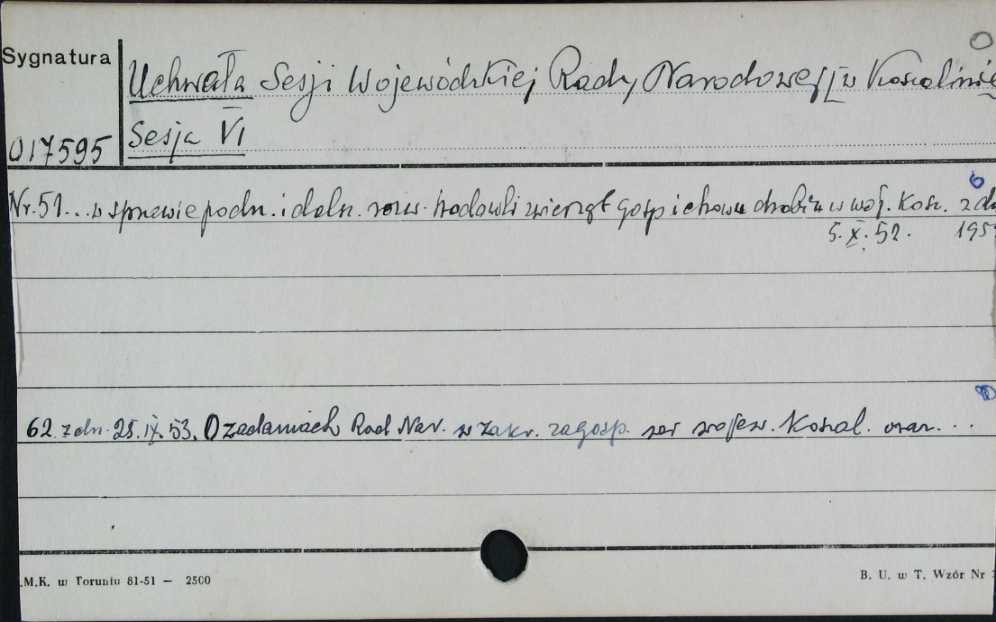 Sygnatura
Uchwała Sesji Wojewódzkiej Rady Narodowej w Koszalinie
Sesja VI
017595
Nr. 51... w sprawie podn. i daln. rozw. hodowli zwierząt gosp i chowu drobiu w woj. Kosz. z dn
5. X. 52. 195
62 z dn. 25. IX. 53. O zadaniach Rad Nar. w zakr. zagosp. woj. Koszal. oraz...
.M.K. w Toruniu 81-51 — 2500
B. U. w T. Wzór Nr